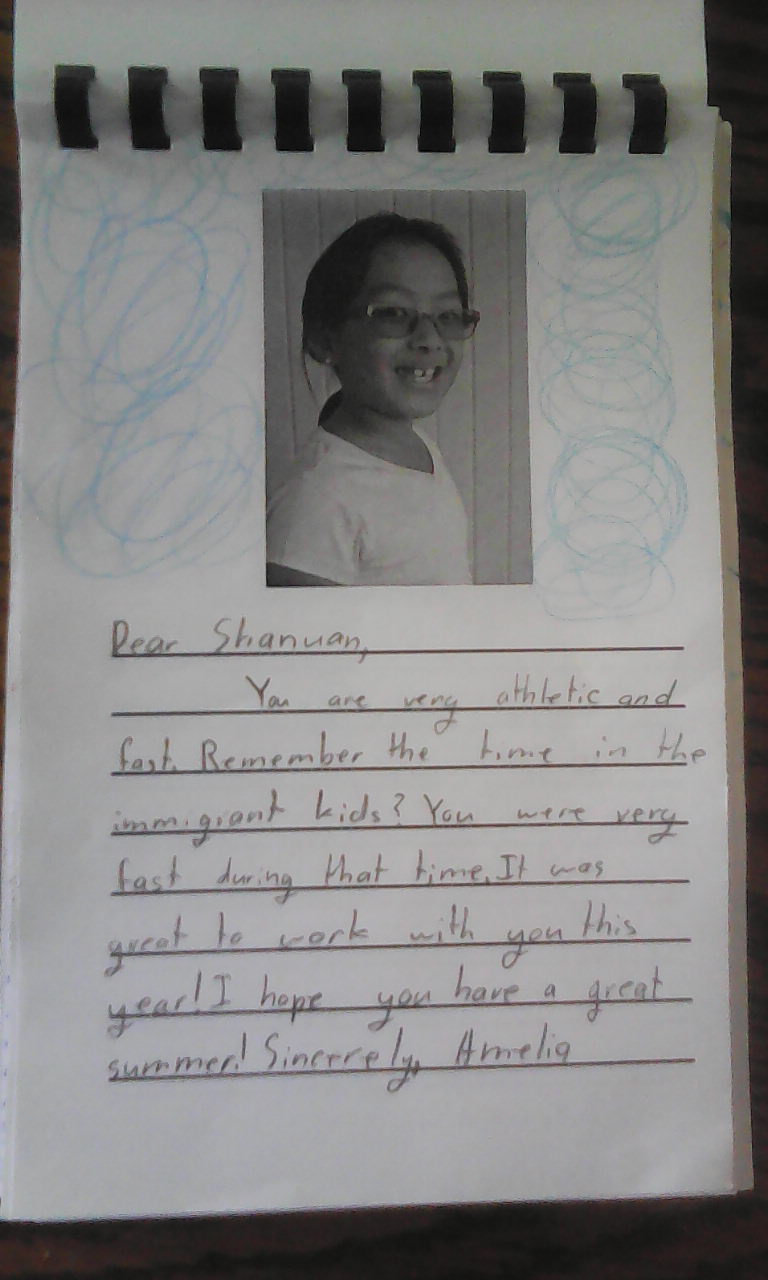 Dear Shanuan,
You are very athletic and
fast. Remember the time in the
immigrant kids? You were very
fast during that time. It was
great to work with you this
year! I hope you have a great
summer! Sincerely, Amelia